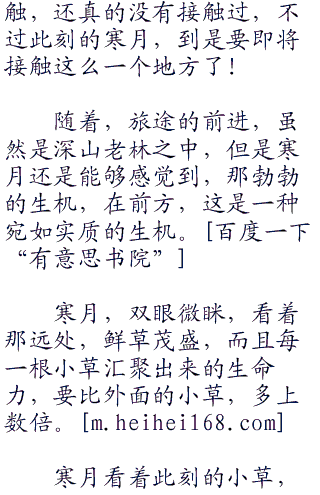 触，还真的没有接触过，不
过此刻的寒月，到是要即将
接触这么一个地方了！
随着，旅途的前进，虽
然是深山老林之中，但是寒
月还是能够感觉到，那勃勃
的生机，在前方，这是一种
宛如实质的生机。[百度一下
“有意思书院”]
寒月，双眼微眯，看着
那远处，鲜草茂盛，而且每
一根小草汇聚出来的生命
力，要比外面的小草，多上
数倍。[m.heihei168.com]
寒月看着此刻的小草，